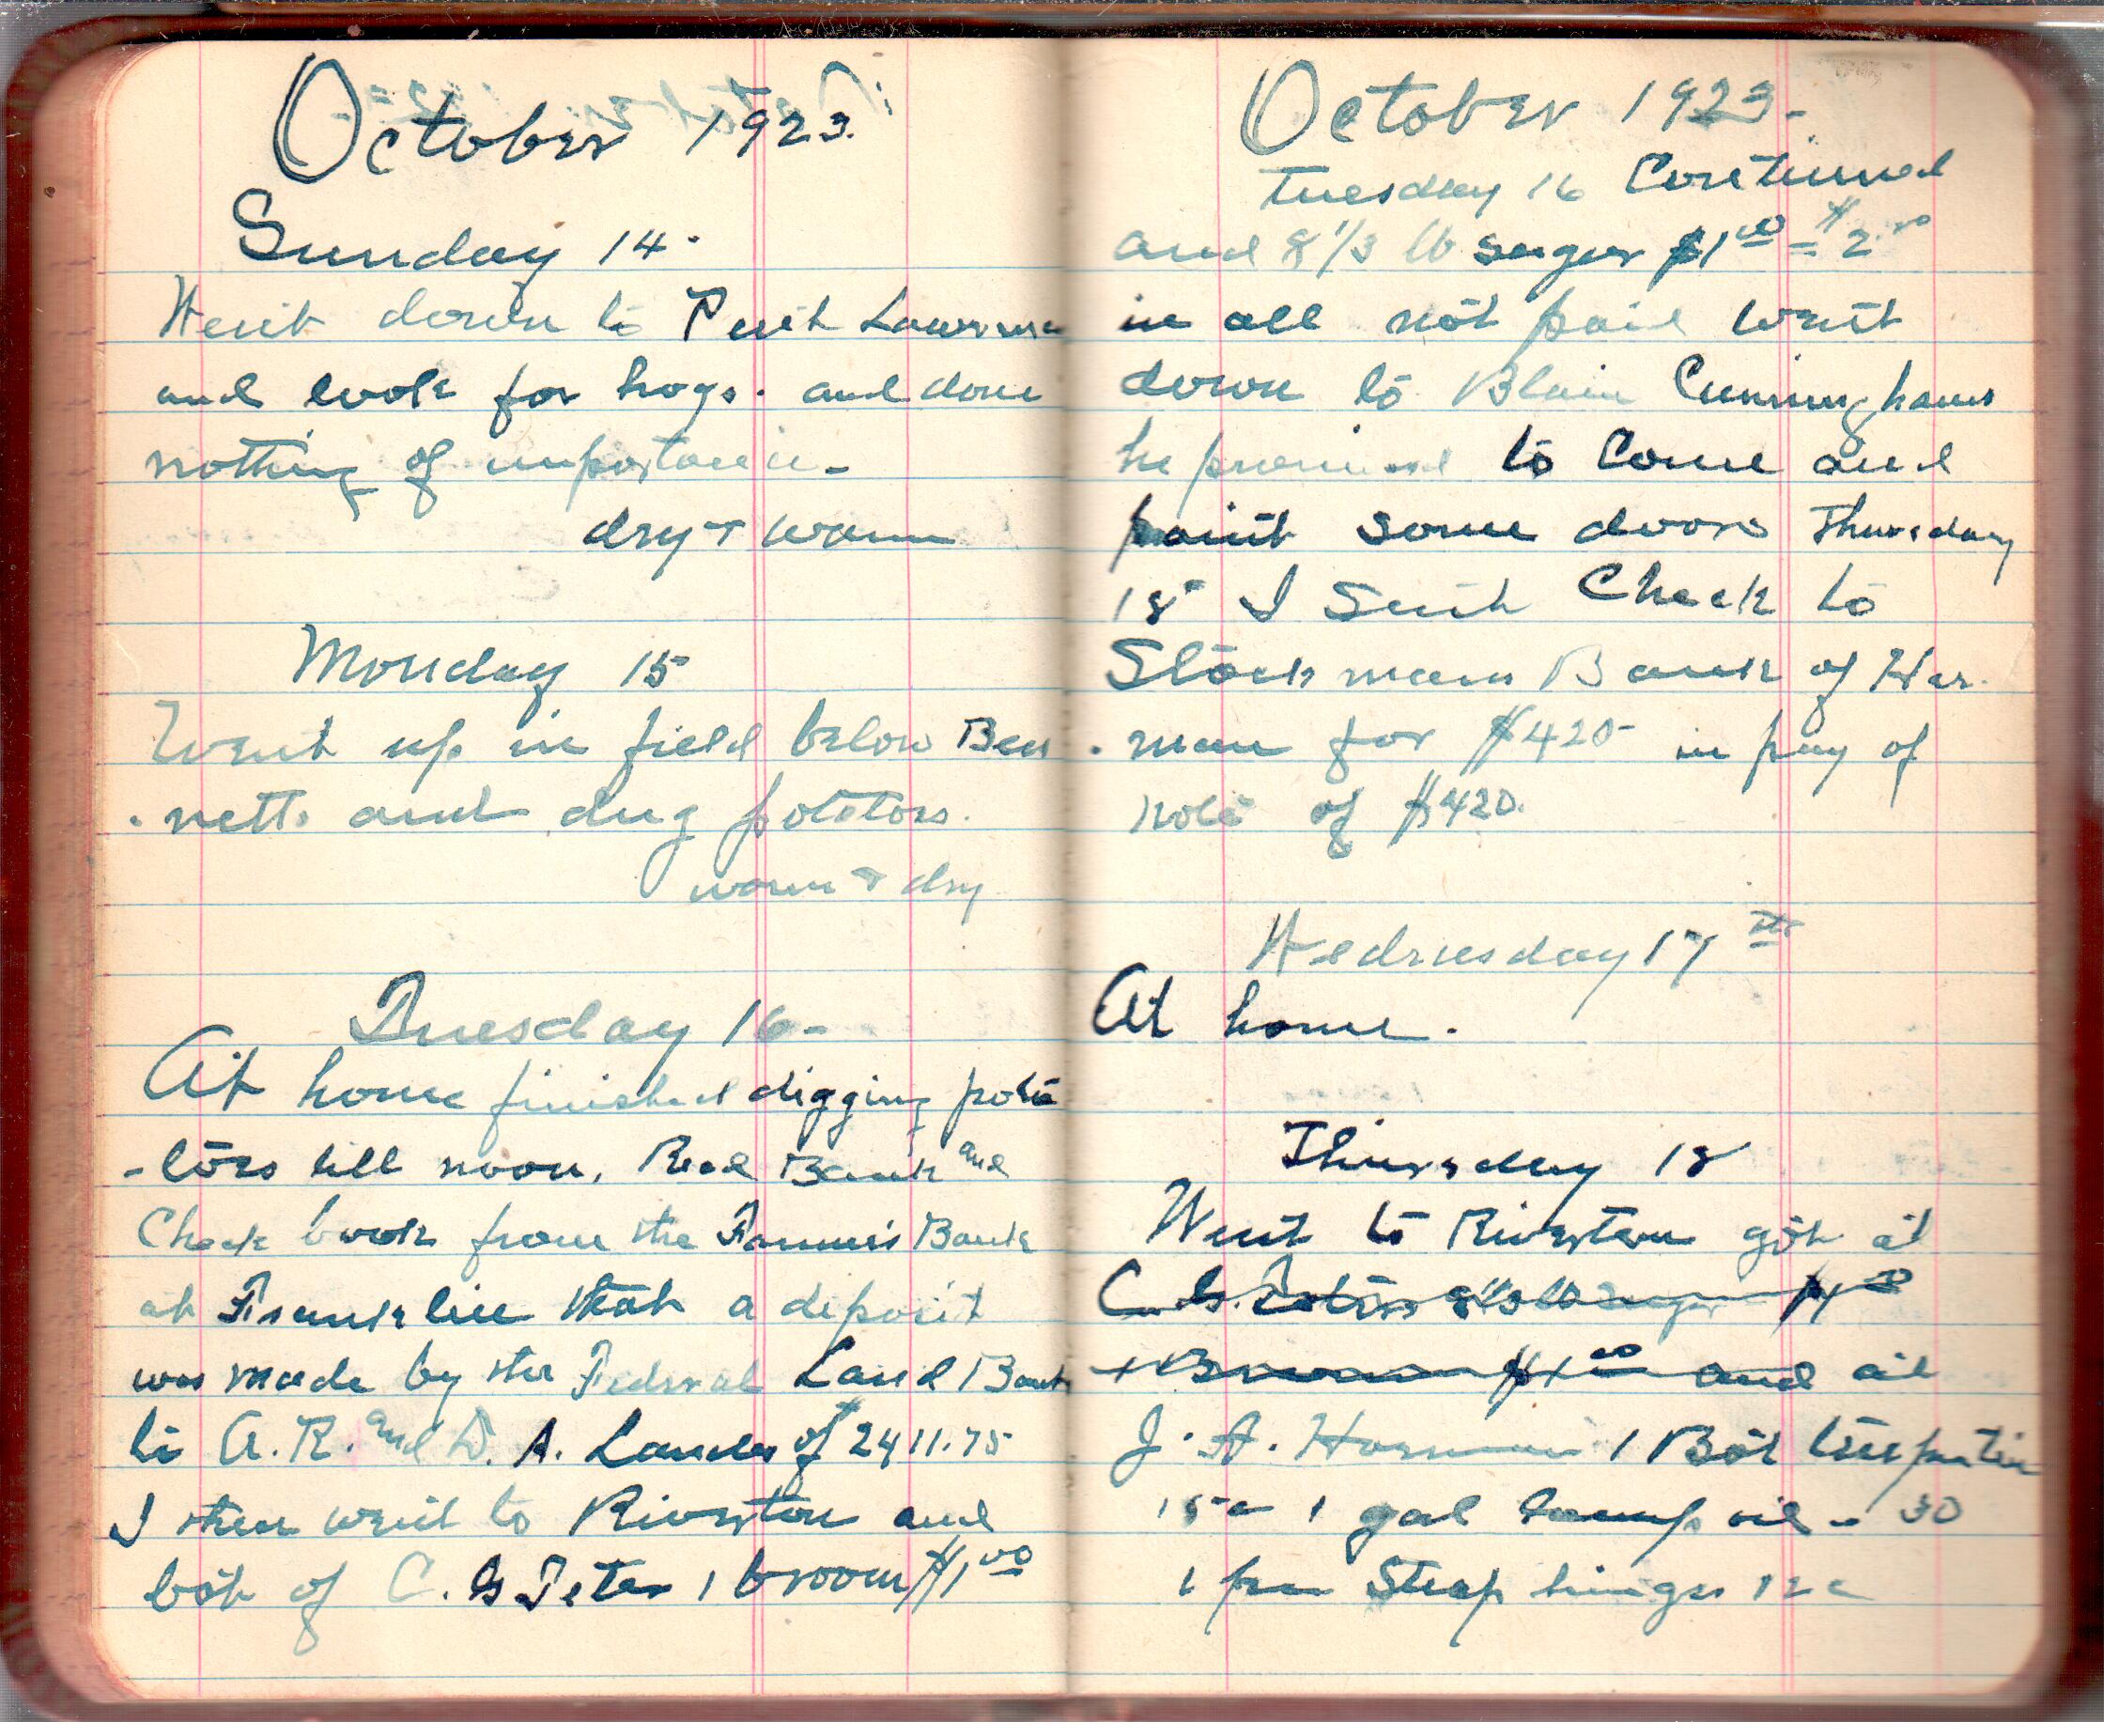 October 1923.
Sunday 14.
Went down to Lawrence
and look for hogs. and done
nothing of importance-
dry + warm
Monday 15
Went up in field below Ben
- netts and dug potatoes.
warm + dry
Tuesday 16-
At home finished digging pota
- toes till noon. Recd Bank and
Check book from the Farmers Bank
at Franklin that a deposit
was made by the Federal Land Bank
to A. R. and D. A. Landes of 2411.75
I then went to Riverton and
bot of C. G Teter 1 broom $1 00
October 1923-
Tuesday 16 Continued
and 8 1/3 lb suger $1 00 = $2.00
in all not paid went
down to Blain Cunninghams
he promised to Come and
paint some doors Thursday
18 I Sent Check to
Stockmans Bank of Har.
- man for $420 in pay of
note of $420.
Wednesday 17 th
At home.
Thursday 18
Went to Riverton got at
C. G. Teters 8 1/3 lb Suger $1 00
+ Broom $1 00 and at
J. A. Harman 1 Bot turpentine
15c 1 gal lamp oil - 30
1 pr Strap hinges 12c